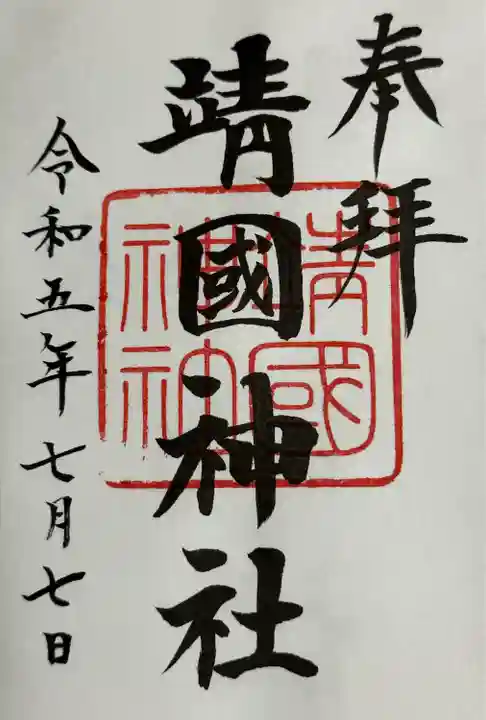 奉拝
靖國神社
靖國
神社
令和五年七月七日